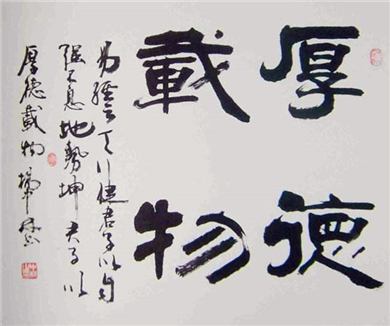 厚德
載物
易經云天行健君子以自
强不息地勢坤君子以
厚德載物